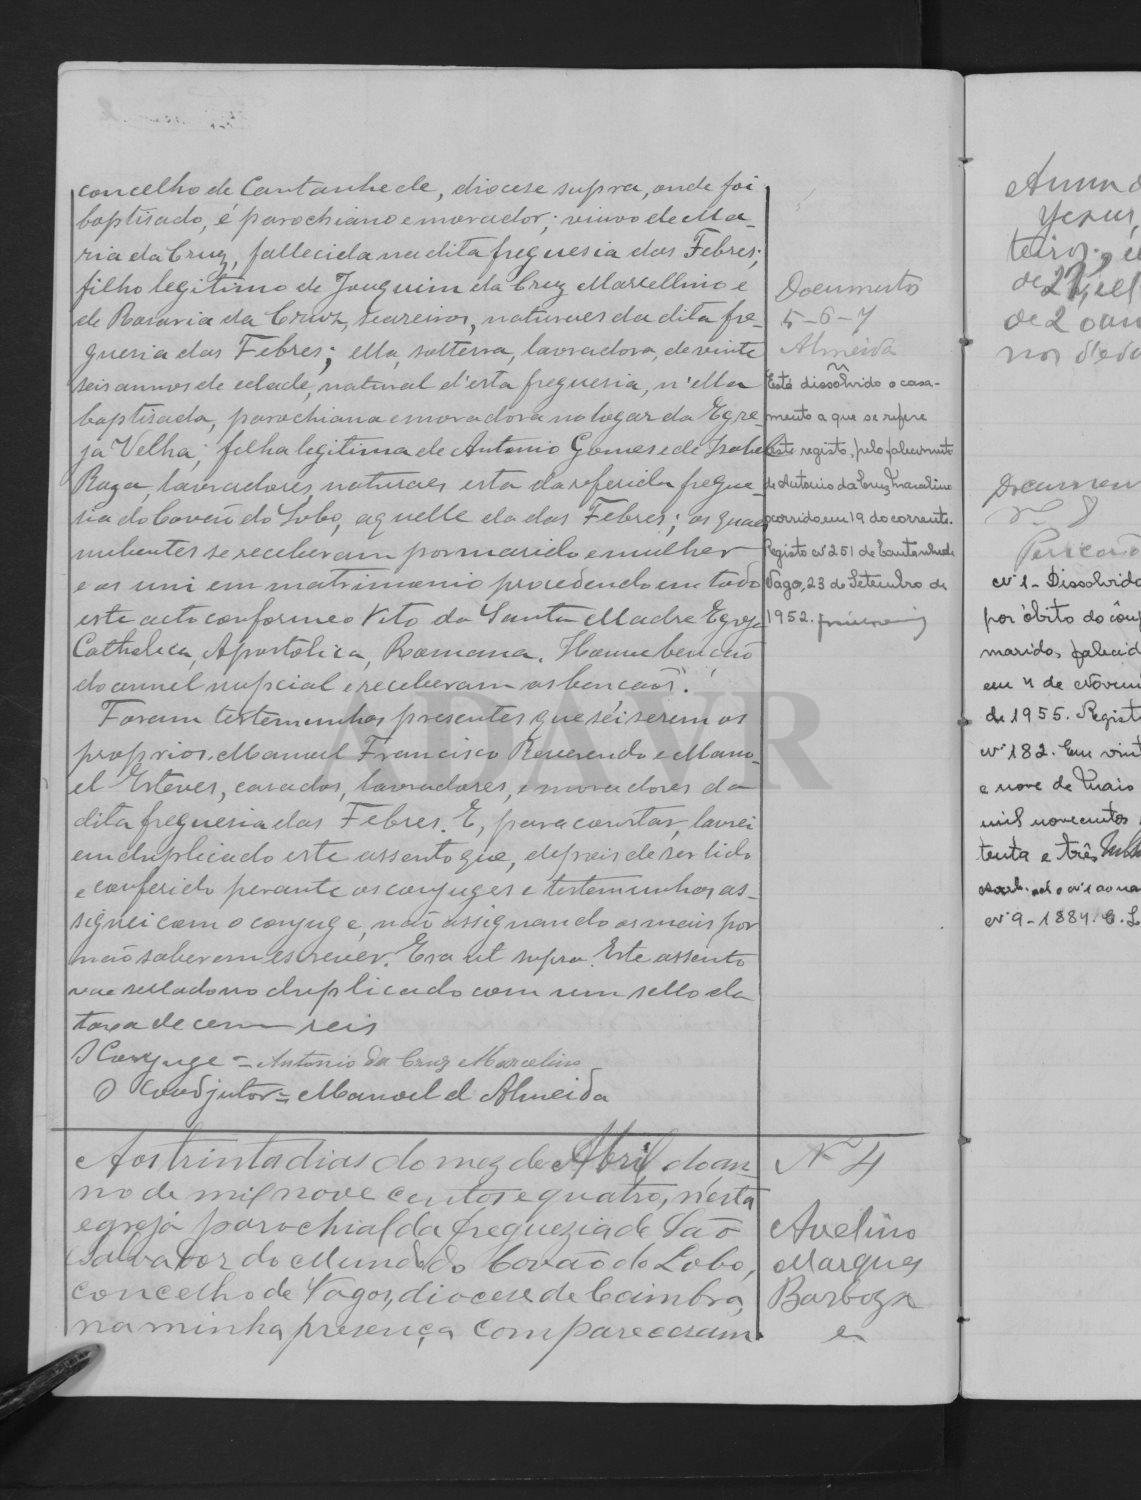 concelho de Cantanhede, diocese supra, onde foi
baptisado, é parochiano e morador; viuvo de Ma-
ria da Cruz, fallecida na dita freguesia das Febres;
filho legitimo de Joaquim da Cruz Marcellino e
de Rosaria da Cruz, seareiros, naturaes da dita fre-
guesia das Febres; ella, solteira, lavradora, de vinte
seis annos de edade, natural d'esta freguesia, n'ella
baptisada, parochiana e moradora no logar da Egre-
ja Velha; filha legitima de Antonio Gomes e de Isabel
Roza, lavradores, naturaes esta da referida fregue-
sia do Covão do Lobo, aquelle da das Febres; os quaes
nubentes se receberam por marido e mulher
e os uni em matrimonio procedendo em todo
este acto conforme o Rito da Santa Madre Egreja
Catholica, Apostolica, Romana. Houve bencão
do annel nupcial e receberam as bencãos.
Foram testemunhas presentes que sei serem os
proprios Manuel Francisco Reverendo e Mano-
el Esteves, casados, lavradores, e moradores da
dita freguesia das Febres. E, para constar, lavrei
em duplicado este assento que, depois de ser lido
e conferido perante os conjuges e testemunhas as-
signei com o conjuge, não assignando os mais por
não saberem escrever. Era ut supra. Este assento
vae sellado no duplicado com um sello da
taxa de cem reis
O Conjuge = Antonio da Cruz Marcelino
O Coadjutor = Manoel d'Almeida
Documentos
5-6-7
Almeida
Está dissolvido o casa-
mento a que se refere
este registo, pelo falecimento
de Antonio da Cruz Marcelino
ocorrido em 19 do corrente.
Registo nº 251 de Cantanhede
Vagos, 23 de Setembro de
1952.
Aos trinta dias do mez de Abril do an-
no de mil nove centos e quatro, n'esta
egreja parochial da freguezia de São
Salvador do Mundo do Covão do Lobo,
concelho de Vagos, diocese de Coimbra,
na minha presença compareceram
Nº 4
Avelino
Marques
Barboza
e
Anna d
Jesus,
de 27,
de 2
Documen
Nº 8
nº 1 - Dissolvido
por óbito do cônj
marido, falecid
em 4 de Novem
de 1955. Regist
nº 182. Em vint
e nove de Maio
mil novecentos
tenta e três
nº 9-1884.
ADAVR